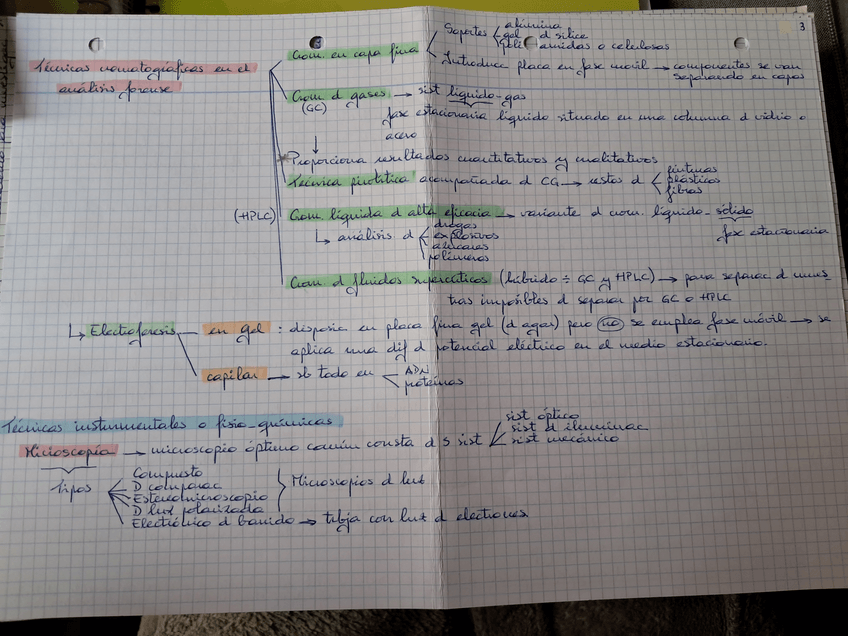 3
Técnicas cromatográficas en el
análisis forense
Crom en capa fina
Soportes
alúmina
gel d sílice
poliamidas o celulosas
Introduce placa en fase móvil → componentes se van
separando en capas
Crom d gases → sist líquido-gas
(GC)
fase estacionaria líquido situado en una columna d vidrio o
acero
Proporciona resultados cuantitativos y cualitativos
Técnica pirolítica acompañada d CG → restos d
pinturas
plásticos
fibras
(HPLC)
Crom. líquida d alta eficacia → variante d crom. líquido-sólido
fase estacionaria
↳ análisis d
drogas
explosivos
azúcares
polímeros
Crom d fluidos supercríticos (híbrido ÷ GC y HPLC) → para separac d mues-
tras imposibles d separar por GC o HPLC
↳ Electroforesis
en gel : disposic en placa fina gel (d agar) pero no se emplea fase móvil → se
aplica una dif d potencial eléctrico en el medio estacionario.
capilar → sb todo en
ADN
proteínas
Técnicas instrumentales o fisio-químicas
Microscopía → microscopio óptimo común consta d 3 sist
sist óptico
sist d iluminac
sist mecánico
Tipos
Compuesto
D comparac
Estereomicroscopio
D luz polarizada
Microscopios d luz
Electrónico d barrido → tbja con luz d electrones